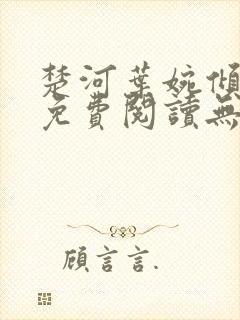 楚河葉婉傾
免費閱讀無
顧言言.